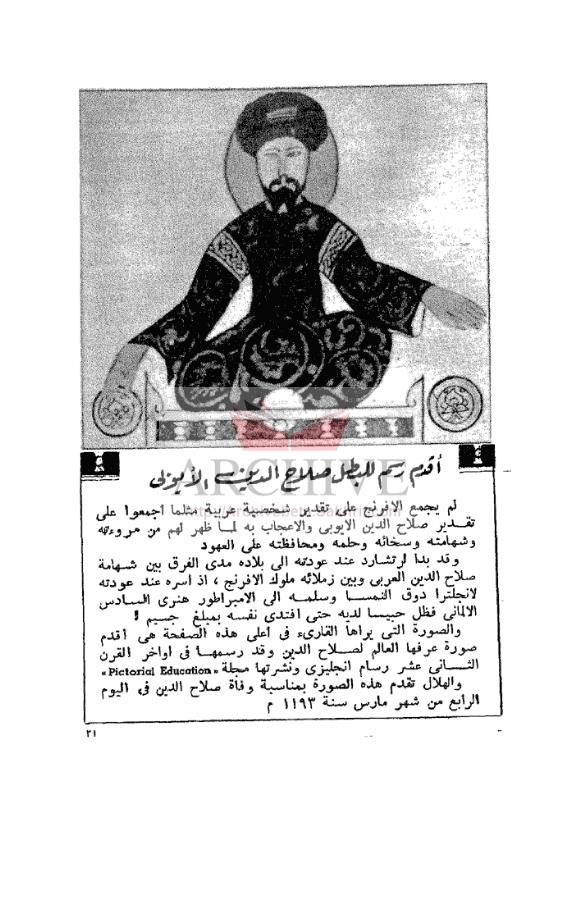 أقدم رسم للبطل صلاح الدين الأيوبي
ARCHIVE
لم يجمع الافرنج على تقدير شخصية عربية مثلما أجمعوا على
تقـدير صلاح الدين الايوبى والاعجاب به لمـا ظهر لهم من مروءته
وشهامته وسخائه وحلمه ومحافظته على العهود
وقد بدا لرتشارد عند عودته الى بلاده مدى الفرق بين شـهامة
صلاح الدين العربى وبين زملائه ملوك الافرنج ، اذ أسره عند عودته
لانجلترا دوق النمسـا وسلمـه الى الامبراطور هنرى السادس
الالمانى فظل حبيسا لديه حتى افتدى نفسه بمبلغ جسيم !
والصورة التى يراها القارىء فى أعلى هذه الصفحة هى أقدم
صورة عرفها العالم لصـلاح الدين وقد رسمهـا فى أواخر القرن
الثـانى عشر رسام انجليزى ونشرتها مجلة «Pictorial Education»
والهلال تقدم هذه الصورة بمناسبة وفاة صلاح الدين فى اليوم
الرابع من شهر مارس سنة ١١٩٣ م
٢١